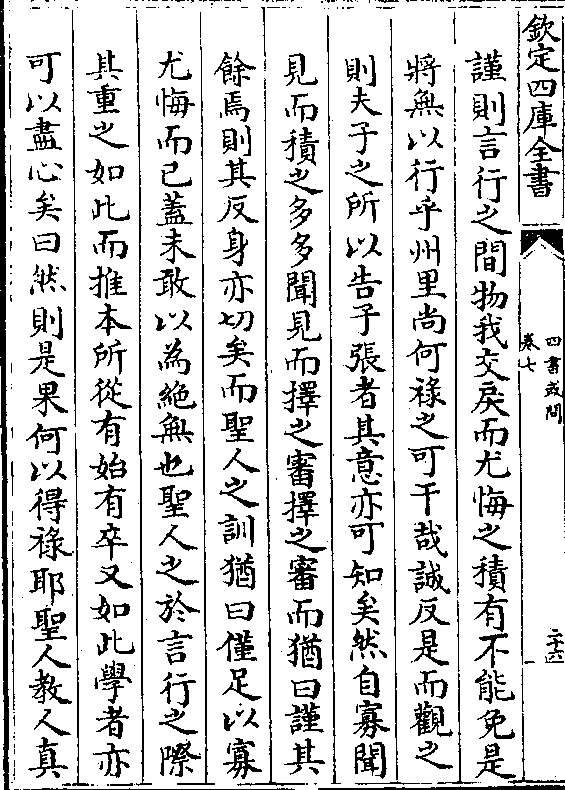 欽定四庫全書
四書或問
卷七
二十六
謹則言行之間物我交戾而尤悔之積有不能免是
將無以行乎州里尚何祿之可干哉誠反是而觀之
則夫子之所以告子張者其意亦可知矣然自寡聞
見而積之多多聞見而擇之審擇之審而猶曰謹其
餘焉則其反身亦切矣而聖人之訓猶曰僅足以寡
尤悔而已蓋未敢以為絶無也聖人之於言行之際
其重之如此而推本所從有始有卒又如此學者亦
可以盡心矣曰然則是果何以得祿耶聖人教人真